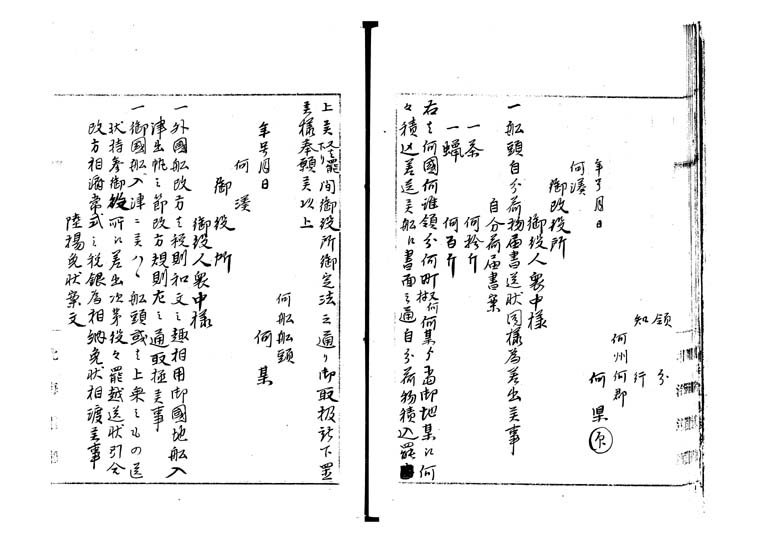 領分
知行
何州何郡
何某 印
年号月日
何湊
御改役所
御役人衆中様
一 船頭自分荷物届書送状同様為差出候事
自分荷届書案
一 茶 何拾斤
一 蠟 何百斤
右者何國何誰領分何町 何某ゟ当御地某江何
々積込差送候船江書面之通自分荷物積込罷
上候 罷間御役所御定法之通り御取扱被下置
候様奉願候以上
何船船頭
何某
年号月日
何湊
御役所
御役人衆中様
一 外國船改方者税則和文之趣相用御國地船入
津出帆之節改方規則左之通取極候事
一 御國船入津ニ候ハ丶船頭或者上乗之もの送
状持参御役所江差出次第役々罷越送状引合
改方相済常式之税銀為相納免状相渡候事
陸揚免状案文